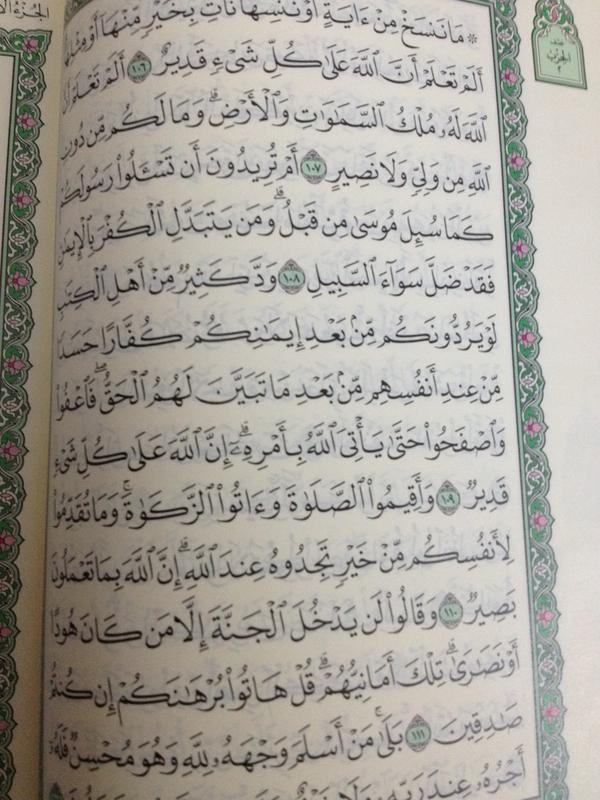 الجزء
نصف
الحزب
٢
۞ مَا نَنسَخْ مِنْ ءَايَةٍ أَوْ نُنسِهَا نَأْتِ بِخَيْرٍ مِّنْهَا أَوْ مِثْلِهَا
أَلَمْ تَعْلَمْ أَنَّ ٱللَّهَ عَلَىٰ كُلِّ شَىْءٍ قَدِيرٌ ١٠٦ أَلَمْ تَعْلَمْ أَنَّ
ٱللَّهَ لَهُۥ مُلْكُ ٱلسَّمَٰوَٰتِ وَٱلْأَرْضِۗ وَمَا لَكُم مِّن دُونِ
ٱللَّهِ مِن وَلِىٍّ وَلَا نَصِيرٍ ١٠٧ أَمْ تُرِيدُونَ أَن تَسْـَٔلُوا۟ رَسُولَكُمْ
كَمَا سُئِلَ مُوسَىٰ مِن قَبْلُۗ وَمَن يَتَبَدَّلِ ٱلْكُفْرَ بِٱلْإِيمَٰنِ
فَقَدْ ضَلَّ سَوَآءَ ٱلسَّبِيلِ ١٠٨ وَدَّ كَثِيرٌ مِّنْ أَهْلِ ٱلْكِتَٰبِ
لَوْ يَرُدُّونَكُم مِّنۢ بَعْدِ إِيمَٰنِكُمْ كُفَّارًا حَسَدًا
مِّنْ عِندِ أَنفُسِهِم مِّنۢ بَعْدِ مَا تَبَيَّنَ لَهُمُ ٱلْحَقُّۖ فَٱعْفُوا۟
وَٱصْفَحُوا۟ حَتَّىٰ يَأْتِىَ ٱللَّهُ بِأَمْرِهِۦٓۗ إِنَّ ٱللَّهَ عَلَىٰ كُلِّ شَىْءٍ
قَدِيرٌ ١٠٩ وَأَقِيمُوا۟ ٱلصَّلَوٰةَ وَءَاتُوا۟ ٱلزَّكَوٰةَۚ وَمَا تُقَدِّمُوا۟
لِأَنفُسِكُم مِّنْ خَيْرٍ تَجِدُوهُ عِندَ ٱللَّهِۗ إِنَّ ٱللَّهَ بِمَا تَعْمَلُونَ
بَصِيرٌ ١١٠ وَقَالُوا۟ لَن يَدْخُلَ ٱلْجَنَّةَ إِلَّا مَن كَانَ هُودًا
أَوْ نَصَٰرَىٰۗ تِلْكَ أَمَانِيُّهُمْۗ قُلْ هَاتُوا۟ بُرْهَٰنَكُمْ إِن كُنتُمْ
صَٰدِقِينَ ١١١ بَلَىٰۚ مَنْ أَسْلَمَ وَجْهَهُۥ لِلَّهِ وَهُوَ مُحْسِنٌ فَلَهُۥٓ
أَجْرُهُۥ عِندَ رَبِّهِۦ وَلَا